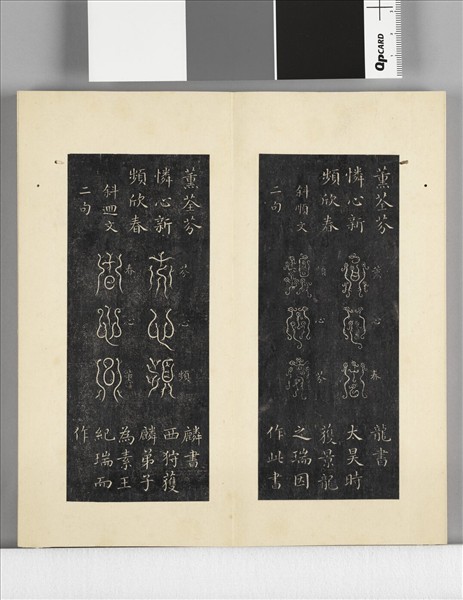 QPCARD
薰荃芬
憐心新
頻欣春
斜順文
二句
薰心春
頻心芬
龍書
太昊時
獲景龍
之瑞因
作此書
薰荃芬
憐心新
頻欣春
斜迴文
二句
芬心頻
春心薰
麟書
西狩獲
麟弟子
為素王
紀瑞而
作